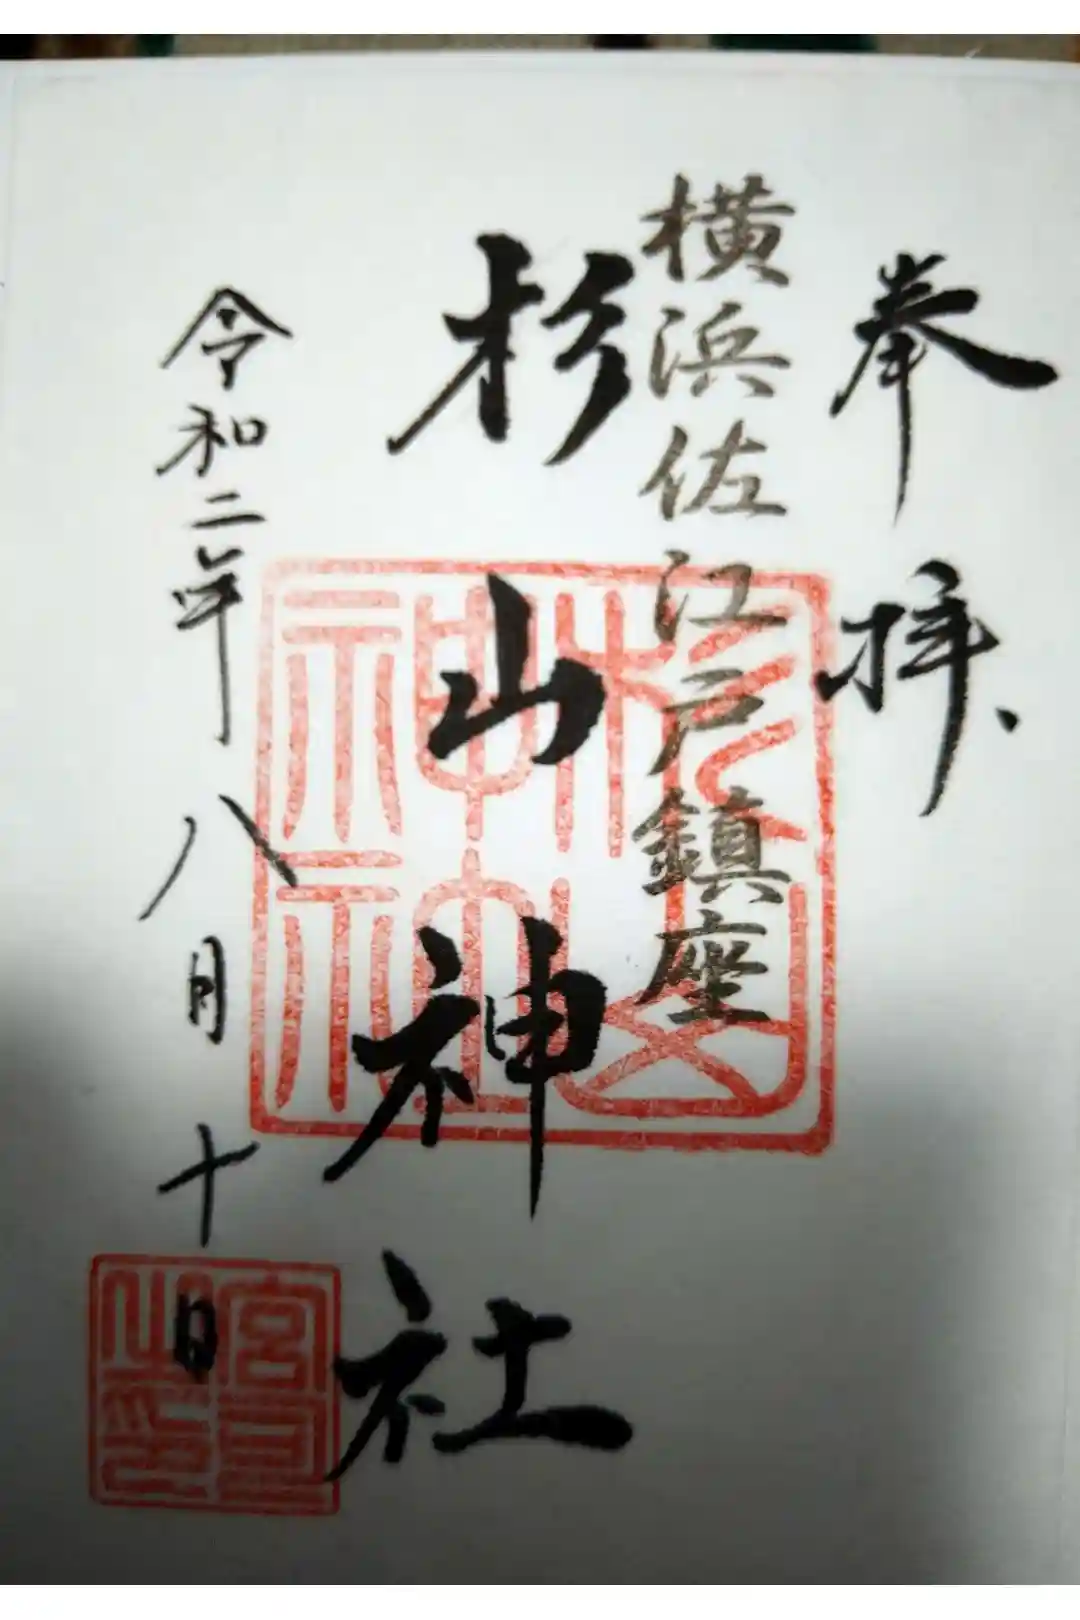 奉拝
横浜佐江戸鎮座
杉山神社
令和二年八月十日
宮司之印